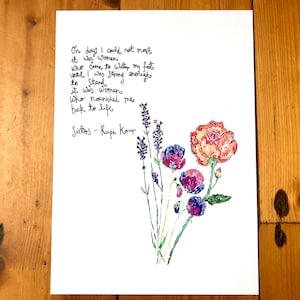 On days I could not move
it was women
who came to water my feet
until I was strong enough
to stand
it was women
who nourished me
back to life
Sisters - Rupi Kaur